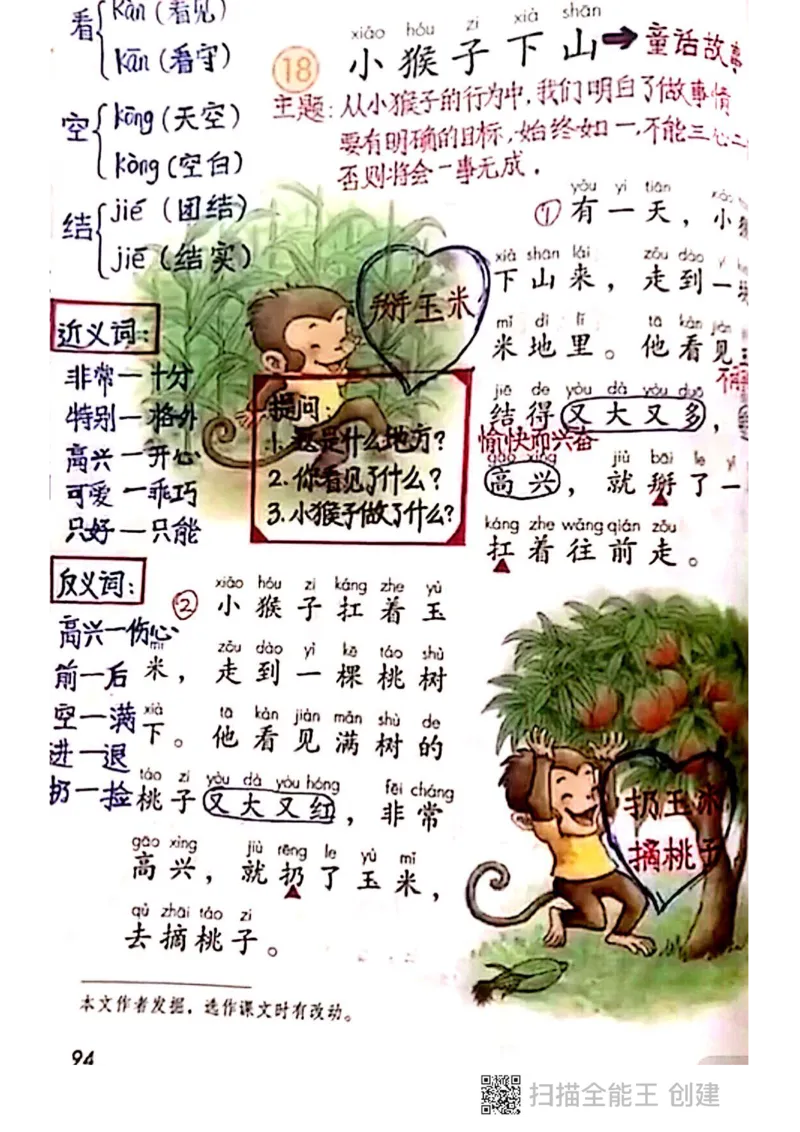 看 kàn (看见)
kān (看守)
空 kōng (天空)
kòng (空白)
结 jié (团结)
jiē (结实)
xiǎo hóu zi xià shān
18 小猴子下山→童话故事
主题: 从小猴子的行为中,我们明白了做事情
要有明确的目标,始终如一,不能三心二
否则将会一事无成.
近义词:
非常—十分
特别—格外
高兴—开心
可爱—乖巧
只好—只能
反义词:
高兴—伤心
前—后
空—满
进—退
扔—捡
yǒu yì tiān
① 有一天,小猴
xià shān lái zǒu dào yí
下山来,走到一块
mǐ dì lǐ tā kàn jiàn
米地里。他看见玉
jiē de yòu dà yòu duō
结得又大又多,
愉快而兴奋
gāo xìng jiù bāi le yí
高兴,就掰了一
káng zhe wǎng qián zǒu
扛着往前走。
掰玉米
提问:
1. 这是什么地方?
2. 你看见了什么?
3. 小猴子做了什么?
xiǎo hóu zi káng zhe yù
② 小猴子扛着玉
mǐ zǒu dào yì kē táo shù
米,走到一棵桃树
xià tā kàn jiàn mǎn shù de
下。他看见满树的
táo zi yòu dà yòu hóng fēi cháng
桃子又大又红,非常
gāo xìng jiù rēng le yù mǐ
高兴,就扔了玉米,
qù zhāi táo zi
去摘桃子。
扔玉米
摘桃子
本文作者发掘,选作课文时有改动。
94
扫描全能王 创建